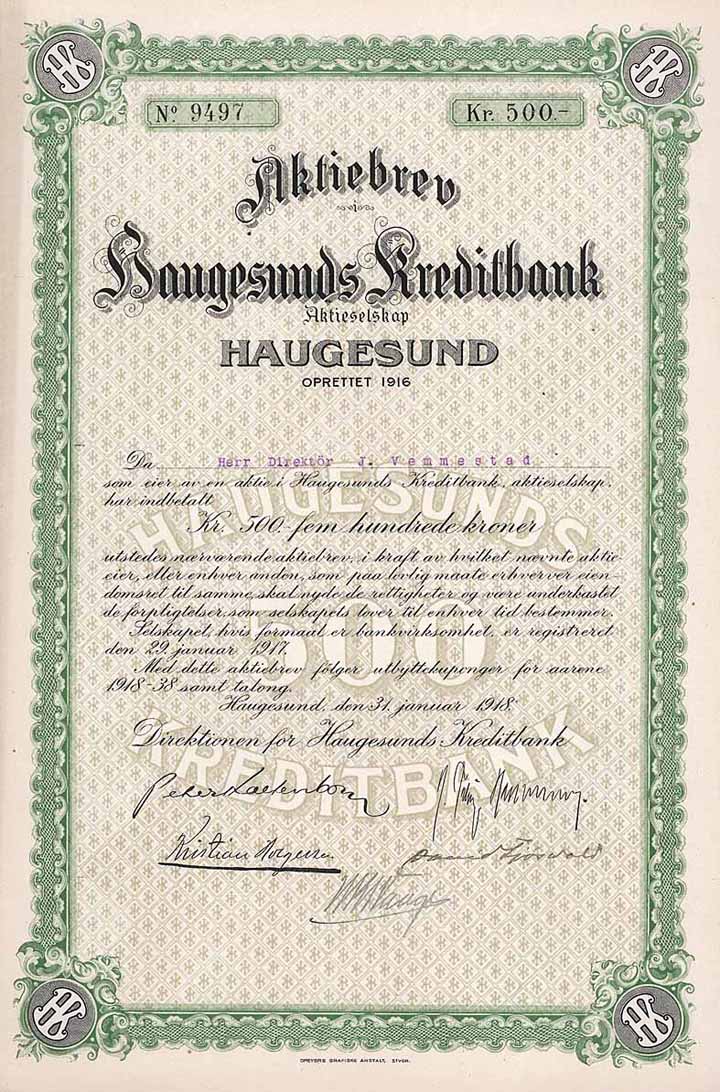 HK HK
Nº 9497 Kr. 500.-
Aktiebrev
i
Haugesunds Kreditbank
Aktieselskap
HAUGESUND
OPRETTET 1916
Da Herr Direktör J. Vemmestad
som eier av en aktie i Haugesunds Kreditbank, aktieselskap,
har indbetalt
Kr. 500.- fem hundrede kroner
utstedes nærværende aktiebrev, i kraft av hvilket nævnte aktie-
eier, eller enhver anden, som paa lovlig maate erhverver eien-
domsret til samme, skal nyde de rettigheter og være underkastet
de forpligtelser, som selskapets lover til enhver tid bestemmer.
Selskapet, hvis formaal er bankvirksomhet, er registreret
den 29. januar 1917.
Med dette aktiebrev følger utbyttekuponger for aarene
1918-38 samt talong.
Haugesund, den 31. januar 1918.
Direktionen for Haugesunds Kreditbank
HAUGESUNDS
500
KREDITBANK
Peter
Kristian
HK HK
DREYERS GRAFISKE ANSTALT, STVGR.